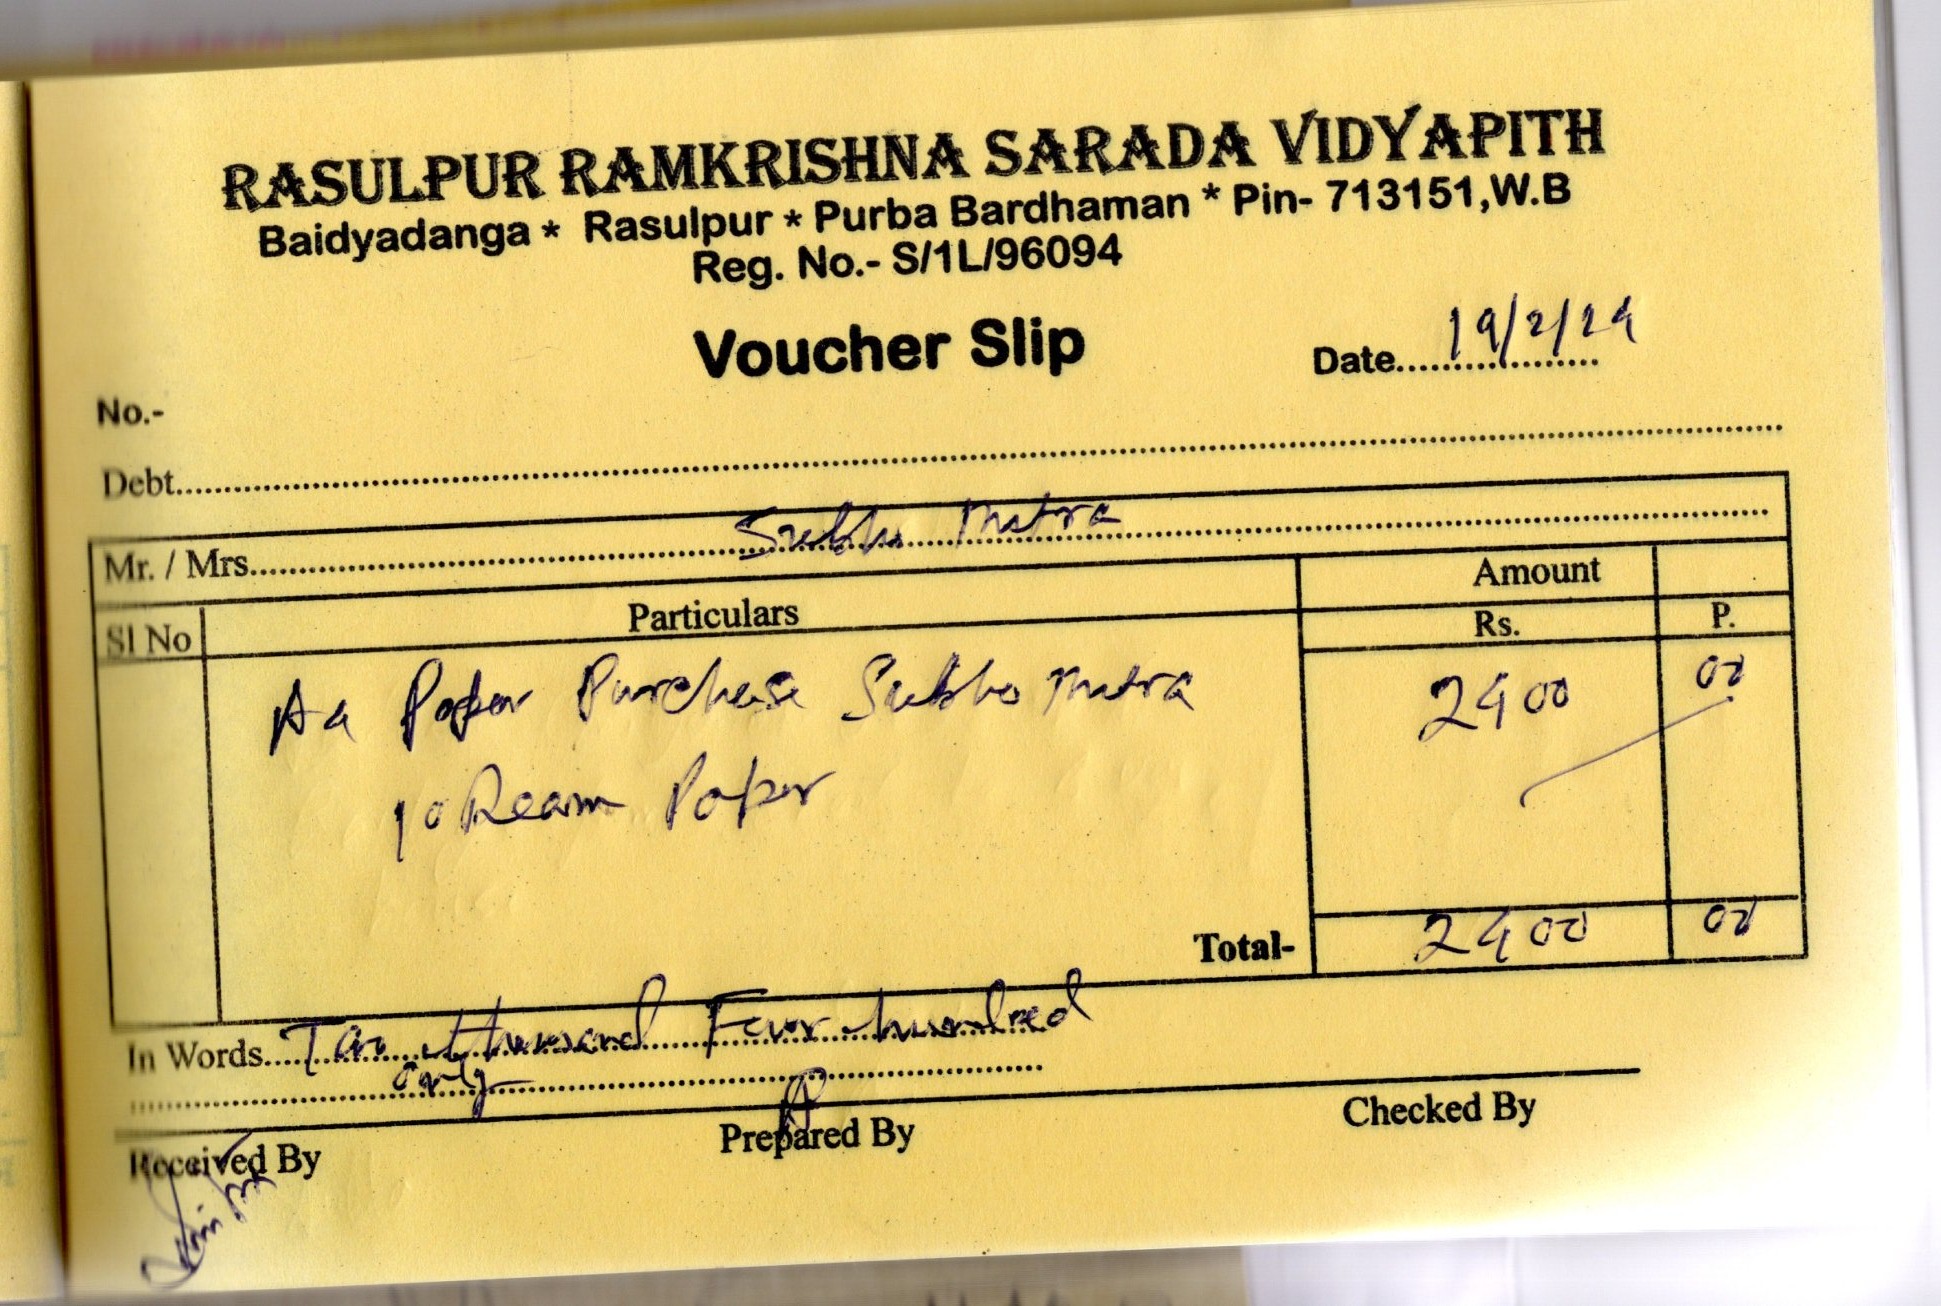 RASULPUR RAMKRISHNA SARADA VIDYAPITH
Baidyadanga * Rasulpur * Purba Bardhaman * Pin- 713151,W.B
Reg. No.- S/1L/96094
Voucher Slip
Date 19/2/24
No.-
Debt
Mr. / Mrs. Subho Mitra
Sl No Particulars Amount
Rs. P.
A4 Paper Purchase Subho Mitra 2400 00
10 Ream Paper
Total- 2400 00
In Words thousand Four hundred
only
Received By Prepared By Checked By